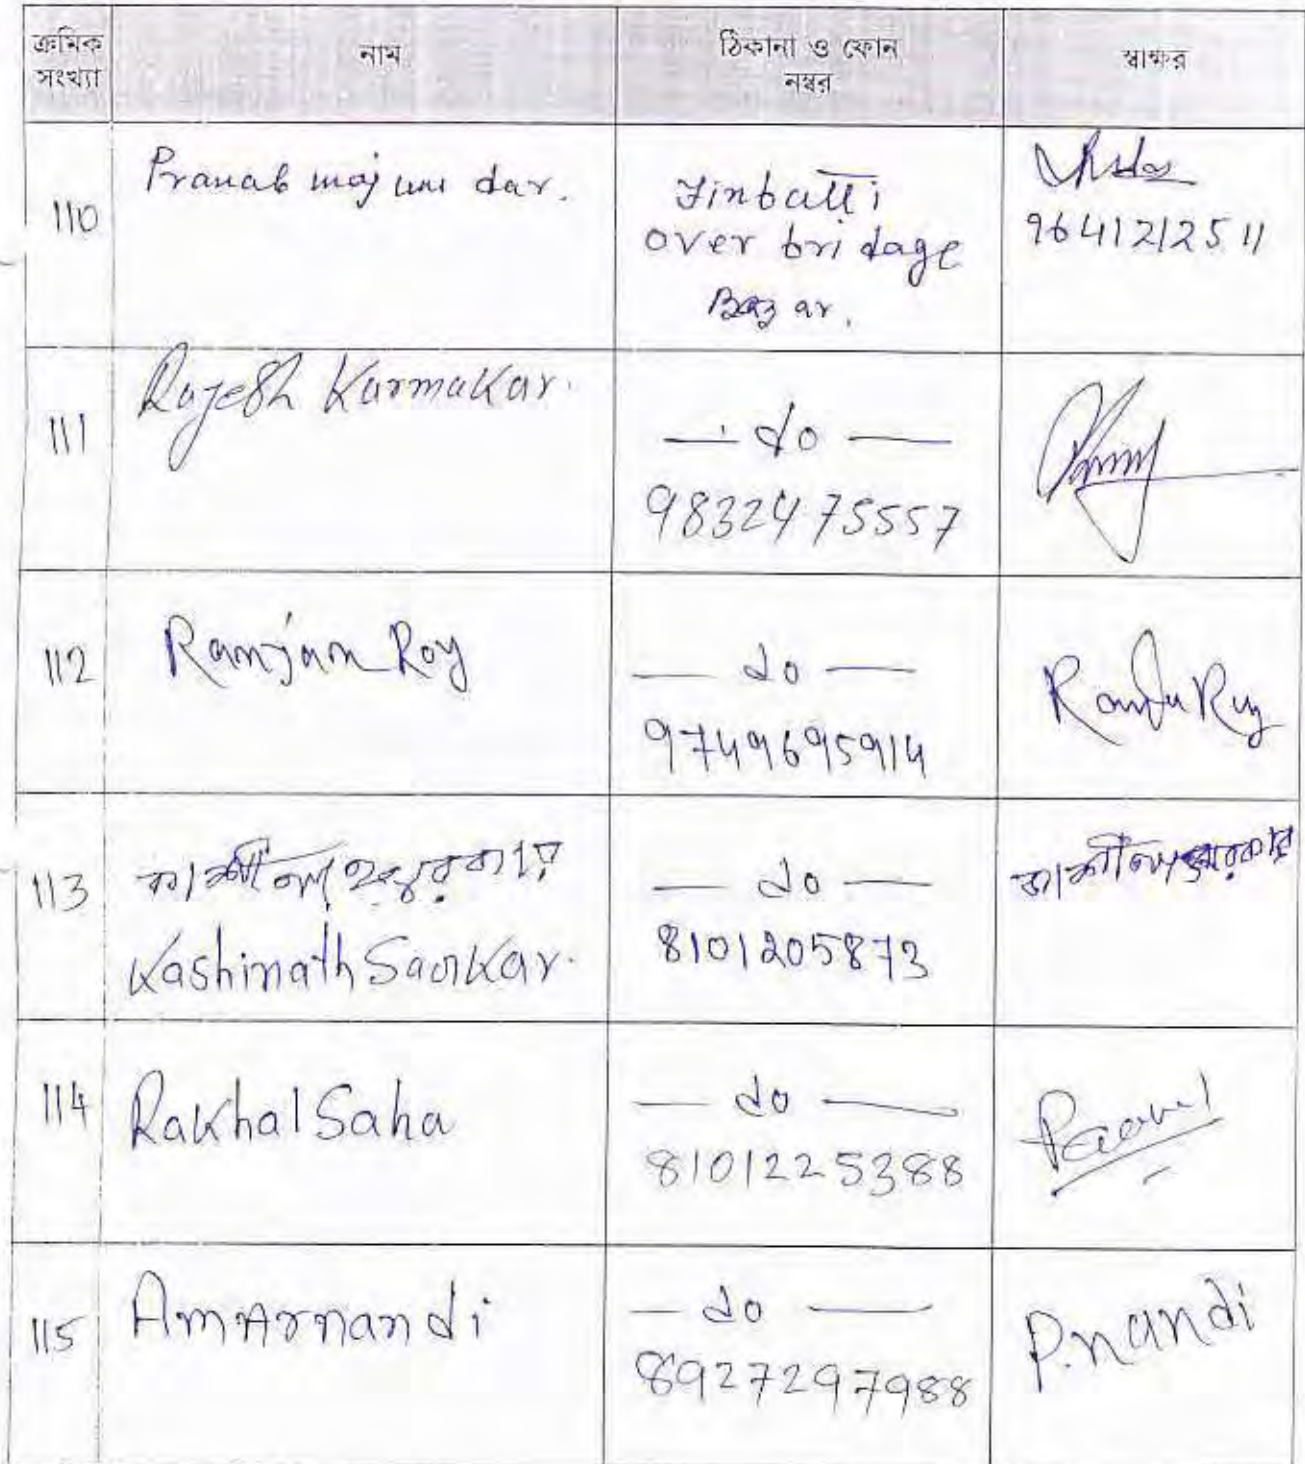 ক্রমিক সংখ্যা নাম ঠিকানা ও ফোন নম্বর স্বাক্ষর
110 Pranab majumdar.
Tinbatti
over bridage
Bazar.
9641212511
111 Rajesh Karmakar.
— do —
9832475557
112 Ranjan Roy
— do —
9749695914
113 কাশীনাথ সরকার
Kashinath Sarkar.
— do —
8101205873
কাশীনাথ সরকার
114 Rakhal Saha
— do —
8101225388
115 AmArnandi
— do —
8927297988
P.nandi